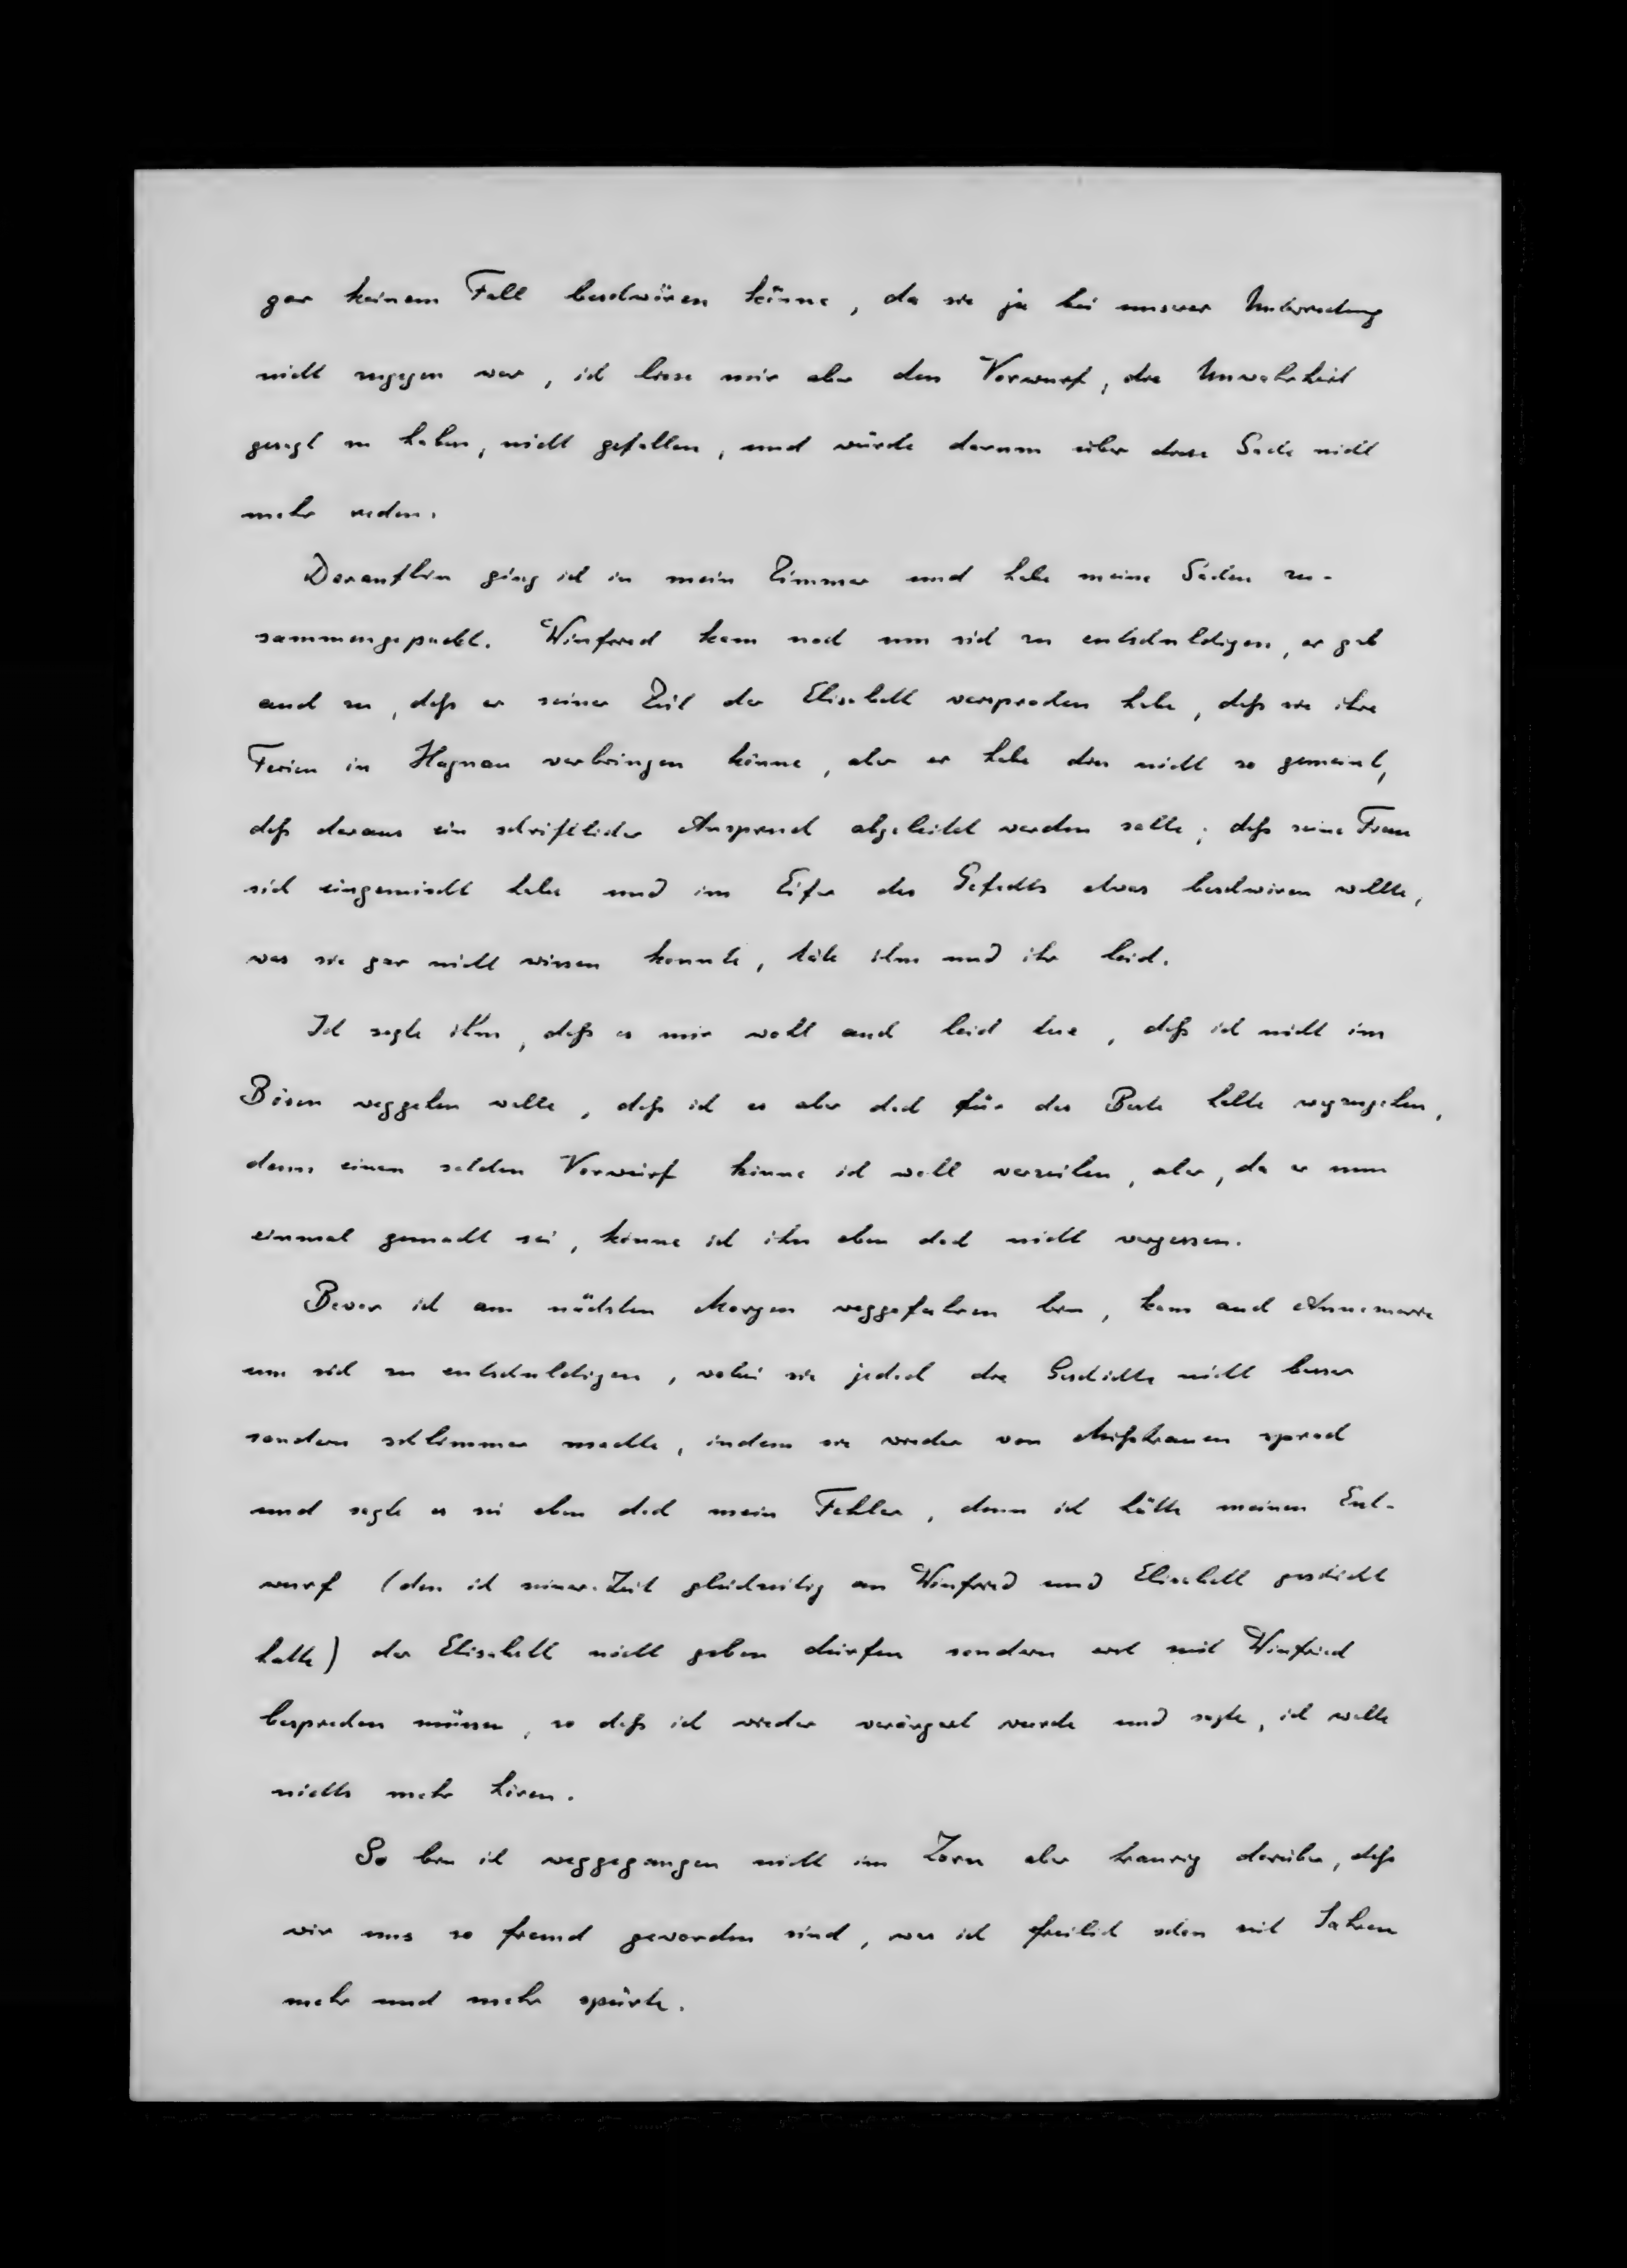 gar keinem Fall beschwören könne, da sie ja bei unserer Unterredung
nicht zugegen war, ich liese mir aber den Vorwurf, die Unwahrheit
gesagt zu haben, nicht gefallen, und würde darum über diese Sache nicht
mehr reden.
Daraufhin ging ich in mein Zimmer und habe meine Sachen zu-
sammengepackt. Winfried kam noch um sich zu entschuldigen, er gab
auch zu, daß er seiner Zeit der Elisabeth versprochen habe, daß sie ihre
Ferien in Hagnau verbringen könne, aber er habe dies nicht so gemeint,
daß daraus ein schriftlicher Anspruch abgeleitet werden solle; daß seine Frau
sich eingemischt habe und im Eifer des Gefechts etwas beschwören wollte,
was sie gar nicht wissen konnte, täte ihm und ihr leid.
Ich sagte ihm, daß es mir wohl auch leid tue, daß ich nicht im
Bösen weggehen wolle, daß ich es aber doch für das Beste halte wegzugehen,
denn einen solchen Vorwurf könne ich wohl verzeihen, aber, da er nun
einmal gemacht sei, könne ich ihn eben doch nicht vergessen.
Bevor ich am nächsten Morgen weggefahren bin, kam auch Annemarie
um sich zu entschuldigen, wobei sie jedoch die Geschichte nicht besser
sondern schlimmer machte, indem sie wieder von Mißtrauen sprach
und sagte es sei eben doch mein Fehler, denn ich hätte meinen Ent-
wurf (den ich seiner Zeit gleichzeitig an Winfried und Elisabeth geschickt
hatte) der Elisabeth nicht geben dürfen sondern erst mit Winfried
besprechen müssen, so daß ich wieder verärgert wurde und sagte, ich wolle
nichts mehr hören.
So bin ich weggegangen nicht im Zorn aber traurig darüber, daß
wir uns so fremd geworden sind, was ich freilich schon seit Jahren
mehr und mehr spürte.